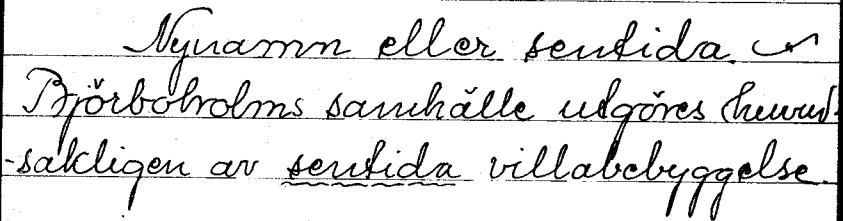 Nynamn eller sentida.
Björboholms samhälle utgöres (huvud-
-sakligen av sentida villabebyggelse.